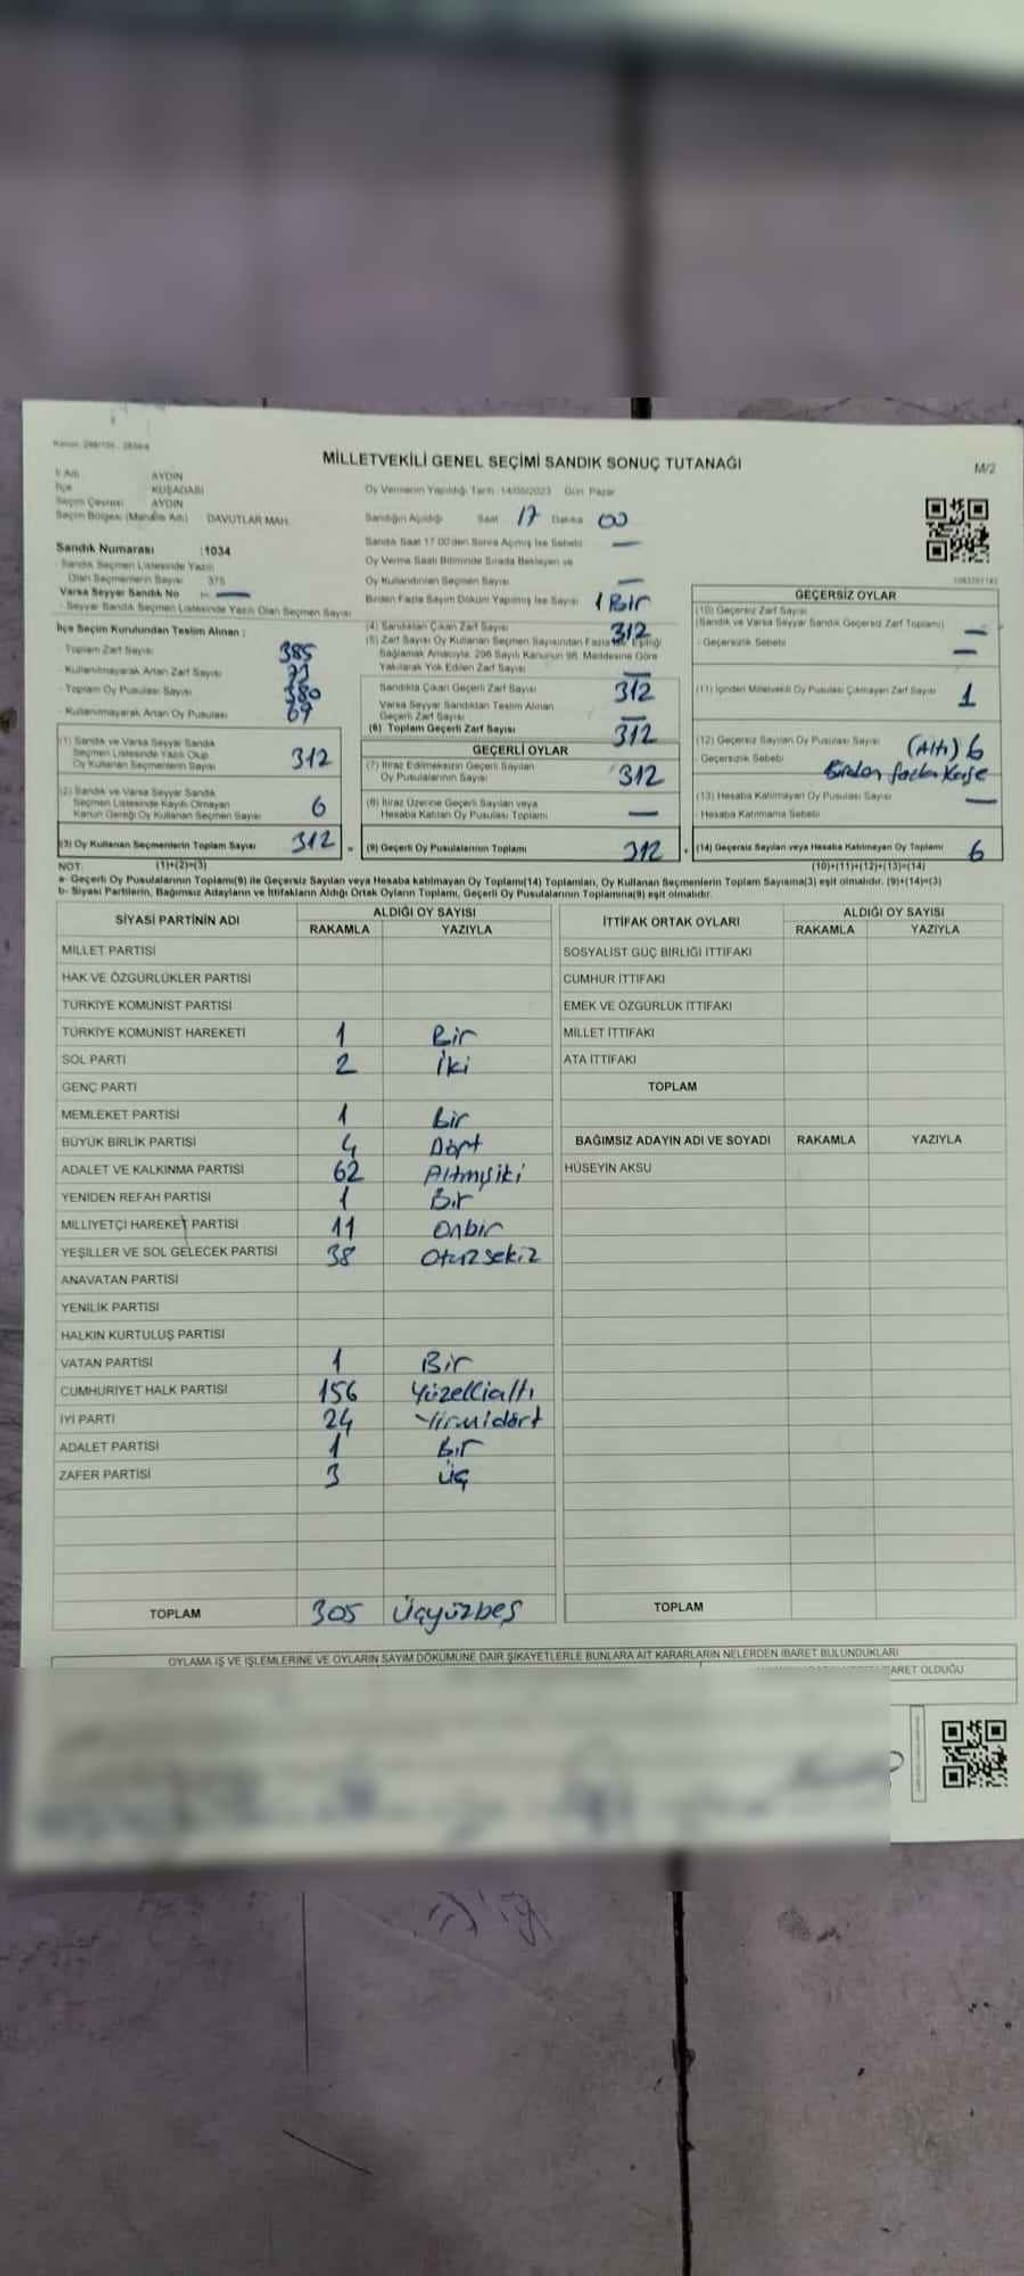 MİLLETVEKİLİ GENEL SEÇİMİ SANDIK SONUÇ TUTANAĞI
M/2
İl Adı AYDIN
İlçe KUŞADASI
Seçim Çevresi AYDIN
Seçim Bölgesi (Mahalle Adı) DAVUTLAR MAH.
Sandık Numarası :1034
Sandık Seçmen Listesinde Yazılı
Olan Seçmenlerin Sayısı 375
Varsa Seyyar Sandık No —
Seyyar Sandık Seçmen Listesinde Yazılı Olan Seçmen Sayısı
Oy Vermenin Yapıldığı Tarih :14/05/2023 Gün: Pazar
Sandığın Açıldığı Saat 17 Dakika 00
Sandık Saat 17:00'den Sonra Açılmış İse Sebebi —
Oy Verme Saati Bitiminde Sırada Bekleyen ve
Oy Kullandırılan Seçmen Sayısı —
Birden Fazla Sayım Döküm Yapılmış İse Sayısı 1 Bir
İlçe Seçim Kurulundan Teslim Alınan :
Toplam Zarf Sayısı 385
Kullanılmayarak Artan Zarf Sayısı 73
Toplam Oy Pusulası Sayısı 380
Kullanılmayarak Artan Oy Pusulası 69
(1) Sandık ve Varsa Seyyar Sandık
Seçmen Listesinde Yazılı Olup
Oy Kullanan Seçmenlerin Sayısı 312
(2) Sandık ve Varsa Seyyar Sandık
Seçmen Listesinde Kayıtlı Olmayan
Kanun Gereği Oy Kullanan Seçmen Sayısı 6
(3) Oy Kullanan Seçmenlerin Toplam Sayısı 312
(4) Sandıktan Çıkan Zarf Sayısı 312
(5) Zarf Sayısı Oy Kullanan Seçmen Sayısından Fazla İse, Eşitliği
Sağlamak Amacıyla, 298 Sayılı Kanunun 98. Maddesine Göre
Yakılarak Yok Edilen Zarf Sayısı —
Sandıkta Çıkan Geçerli Zarf Sayısı 312
Varsa Seyyar Sandıktan Teslim Alınan
Geçerli Zarf Sayısı —
(6) Toplam Geçerli Zarf Sayısı 312
GEÇERLİ OYLAR
(7) İtiraz Edilmeksizin Geçerli Sayılan
Oy Pusulalarının Sayısı 312
(8) İtiraz Üzerine Geçerli Sayılan veya
Hesaba Katılan Oy Pusulası Toplamı —
(9) Geçerli Oy Pusulalarının Toplamı 312
GEÇERSİZ OYLAR
(10) Geçersiz Zarf Sayısı
(Sandık ve Varsa Seyyar Sandık Geçersiz Zarf Toplamı) —
Geçersizlik Sebebi —
(11) İçinden Milletvekili Oy Pusulası Çıkmayan Zarf Sayısı 1
(12) Geçersiz Sayılan Oy Pusulası Sayısı (Altı) 6
Geçersizlik Sebebi Birden fazla Kaşe
(13) Hesaba Katılmayan Oy Pusulası Sayısı —
Hesaba Katılmama Sebebi
(14) Geçersiz Sayılan veya Hesaba Katılmayan Oy Toplamı 6
NOT: (1)+(2)=(3) (10)+(11)+(12)+(13)=(14)
a- Geçerli Oy Pusulalarının Toplamı(9) ile Geçersiz Sayılan veya Hesaba katılmayan Oy Toplamı(14) Toplamları, Oy Kullanan Seçmenlerin Toplam Sayısına(3) eşit olmalıdır. (9)+(14)=(3)
b- Siyasi Partilerin, Bağımsız Adayların ve İttifakların Aldığı Ortak Oyların Toplamı, Geçerli Oy Pusulalarının Toplamına(9) eşit olmalıdır.
SİYASİ PARTİNİN ADI ALDIĞI OY SAYISI
RAKAMLA YAZIYLA
MİLLET PARTİSİ
HAK VE ÖZGÜRLÜKLER PARTİSİ
TÜRKİYE KOMÜNİST PARTİSİ
TÜRKİYE KOMÜNİST HAREKETİ 1 Bir
SOL PARTİ 2 İki
GENÇ PARTİ
MEMLEKET PARTİSİ 1 Bir
BÜYÜK BİRLİK PARTİSİ 4 Dört
ADALET VE KALKINMA PARTİSİ 62 Altmışiki
YENİDEN REFAH PARTİSİ 1 Bir
MİLLİYETÇİ HAREKET PARTİSİ 11 Onbir
YEŞİLLER VE SOL GELECEK PARTİSİ 38 Otuzsekiz
ANAVATAN PARTİSİ
YENİLİK PARTİSİ
HALKIN KURTULUŞ PARTİSİ
VATAN PARTİSİ 1 Bir
CUMHURİYET HALK PARTİSİ 156 Yüzellialtı
İYİ PARTİ 24 Yirmidört
ADALET PARTİSİ 1 Bir
ZAFER PARTİSİ 3 Üç
TOPLAM 305 Üçyüzbeş
İTTİFAK ORTAK OYLARI ALDIĞI OY SAYISI
RAKAMLA YAZIYLA
SOSYALİST GÜÇ BİRLİĞİ İTTİFAKI
CUMHUR İTTİFAKI
EMEK VE ÖZGÜRLÜK İTTİFAKI
MİLLET İTTİFAKI
ATA İTTİFAKI
TOPLAM
BAĞIMSIZ ADAYIN ADI VE SOYADI RAKAMLA YAZIYLA
HÜSEYİN AKSU
TOPLAM
OYLAMA İŞ VE İŞLEMLERİNE VE OYLARIN SAYIM DÖKÜMÜNE DAİR ŞİKAYETLERLE BUNLARA AİT KARARLARIN NELERDEN İBARET BULUNDUKLARI
OLDUĞU